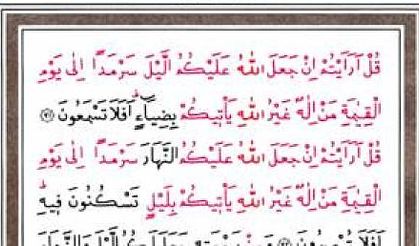 قُلْ اَرَاَيْتُمْ اِنْ جَعَلَ اللّٰهُ عَلَيْكُمُ الَّيْلَ سَرْمَدًا اِلٰى يَوْمِ
الْقِيٰمَةِ مَنْ اِلٰهٌ غَيْرُ اللّٰهِ يَأْتٖيكُمْ بِضِيَٓاءٍ اَفَلَا تَسْمَعُونَ ﴿٧١﴾
قُلْ اَرَاَيْتُمْ اِنْ جَعَلَ اللّٰهُ عَلَيْكُمُ النَّهَارَ سَرْمَدًا اِلٰى يَوْمِ
الْقِيٰمَةِ مَنْ اِلٰهٌ غَيْرُ اللّٰهِ يَأْتٖيكُمْ بِلَيْلٍ تَسْكُنُونَ فٖيهِ